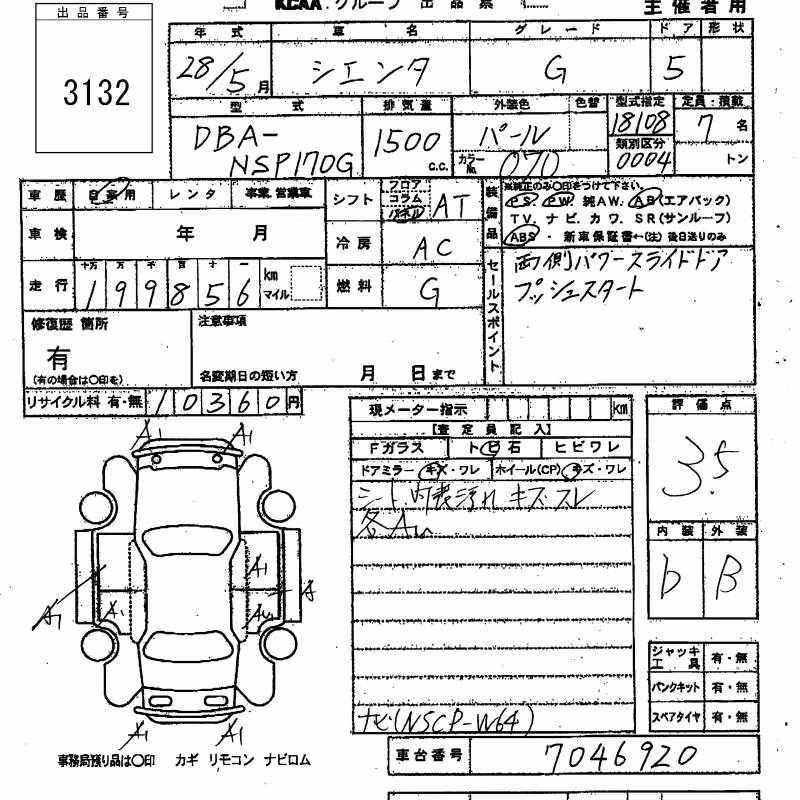 KCAA.グループ 出品票
主催者用
出品番号
3132
年式 車名 グレード ドア 形状
28/5月 シエンタ G 5
型式 排気量 外装色 色替 型式指定 定員・積載
DBA-NSP170G 1500 c.c. パール 18108 7名
カラーNo. 070 類別区分 0004 トン
車歴 自家用 レンタ 事業.営業車
シフト フロア コラム パネル AT
装備品 ※純正のみ○印をつけて下さい。
PS. PW. 純AW. AB(エアバック)
TV. ナビ. カワ. SR(サンルーフ)
ABS ・ 新車保証書←(注) 後日送りのみ
車検 年 月
冷房 AC
走行 十万 万 千 百 十 一
199856 km マイル
燃料 G
セールスポイント
両側パワースライドドア
プッシュスタート
修復歴 箇所
有
(有の場合は○印を)
注意事項
名変期日の短い方 月 日まで
リサイクル料 有・無 10360円
現メーター指示 km
【査定員記入】
Fガラス トビ石 ヒビワレ
ドアミラー キズ・ワレ ホイール(CP) キズ・ワレ
シート、内装汚れ キズ スレ
各AU
ナビ(NSCP-W64)
評価点
3.5
内装 外装
b B
ジャッキ工具 有・無
パンクキット 有・無
スペアタイヤ 有・無
A1 A1
A1
A1 A1 AU A
A1 A1
事務局残り品は○印 カギ リモコン ナビロム
車台番号 7046920